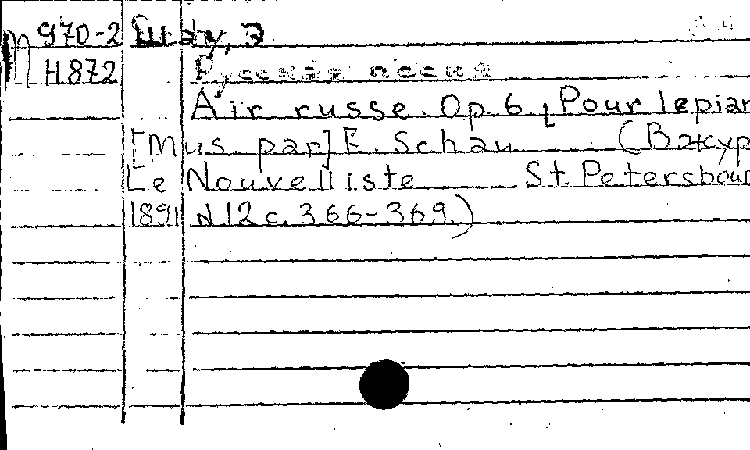 М 970-2 Шау, Э
Н872 Русская песня
Air russe. Op. 6. [Pour le pian
[Mus. par] E. Schau (В жур
Le Nouvelliste St. Petersbour
1891 N 12 с. 366-369.)